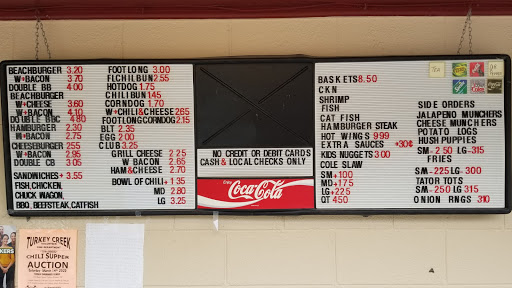 BEACHBURGER 3.20
W+BACON 3.70
DOUBLE BB 4.00
BEACHBURGER
W+CHEESE 3.60
W+BACON 4.10
DOUBLE BBC 4.80
HAMBURGER 2.30
W+BACON 2.75
CHEESEBURGER 2.55
W+BACON 2.95
DOUBLE CB 3.05
SANDWICHES + 3.55
FISH, CHICKEN,
CHUCK WAGON,
BBQ, BEEFSTEAK, CATFISH
FOOT LONG 3.00
FL CHIL BUN 2.55
HOTDOG 1.75
CHILI BUN 1.45
CORNDOG 1.70
W+CHILI&CHEESE 2.65
FOOTLONG CORNDOG 2.15
BLT 2.35
EGG 2.00
CLUB 3.25
GRILL CHEESE 2 25
W BACON 2 65
HAM & CHEESE 2 70
BOWL OF CHILI + 1 35
MD 2.80
LG 3.25
NO CREDIT OR DEBIT CARDS
CASH & LOCAL CHECKS ONLY
Coca-Cola
BASKETS 8.50
CKN
SHRIMP
FISH
CAT FISH
HAMBURGER STEAK
HOT WINGS 9 99
EXTRA SAUCES +30¢
KIDS NUGGETS 3 00
COLE SLAW
SM+100
MD+175
LG+225
QT 450
SIDE ORDERS
JALAPENO MUNCHERS
CHEESE MUNCHERS
POTATO LOGS
HUSH PUPPIES
SM-2 50 LG-315
FRIES
SM-225 LG-300
TATER TOTS
SM-250 LG-315
ONION RNGS 310
TURKEY CREEK
CHILI SUPPER
AUCTION